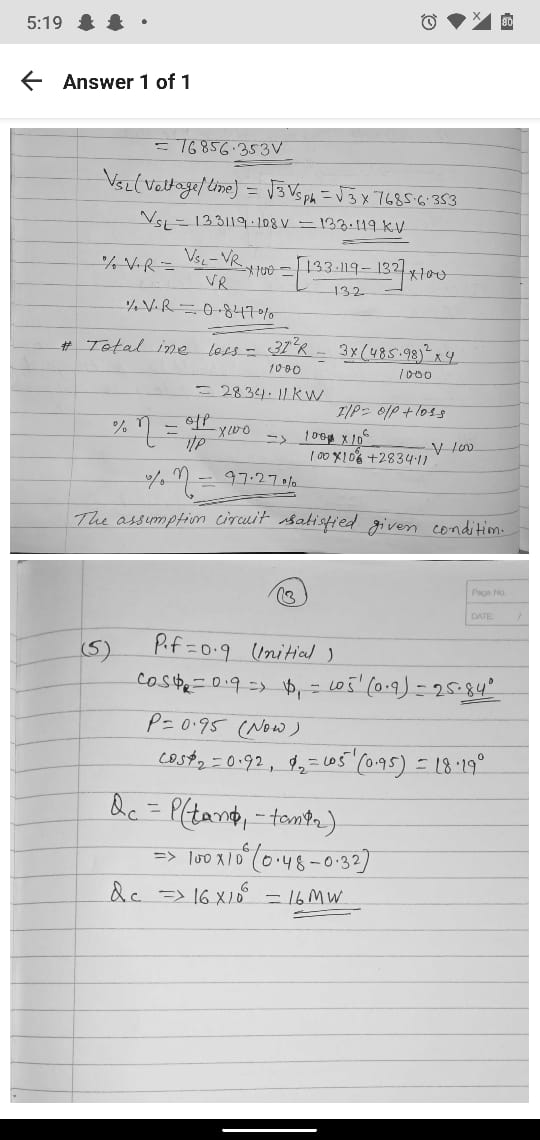 5:19
80
Answer 1 of 1
= 76856.353V
VSL (Voltage/line) = √3 VSph = √3 x 7685.6.353
VSL = 133119.108V = 133.119 KV
% V.R = (VSL - VR)/VR x100 = [133.119 - 132]/132 x100
% V.R = 0.847%
# Total ine loss = 3I²R/1000 = 3x(485.98)² x 4/1000
= 2834.11 KW
I/P = O/P + loss
% η = O/P/I/P x100 => 100 x 10⁶/100 x10⁶ + 2834.11 100
% η = 97.27%
The assumption circuit satisfied given condition.
13
Page No.
DATE: /
(5) P.f = 0.9 (Initial)
cosφR = 0.9 => φ₁ = cos⁻¹(0.9) = 25.84°
P = 0.95 (Now)
cosφ₂ = 0.92, φ₂ = cos⁻¹(0.95) = 18.19°
Qc = P(tanφ₁ - tanφ₂)
=> 100 x 10⁶(0.48 - 0.32)
Qc => 16 x 10⁶ = 16 MW